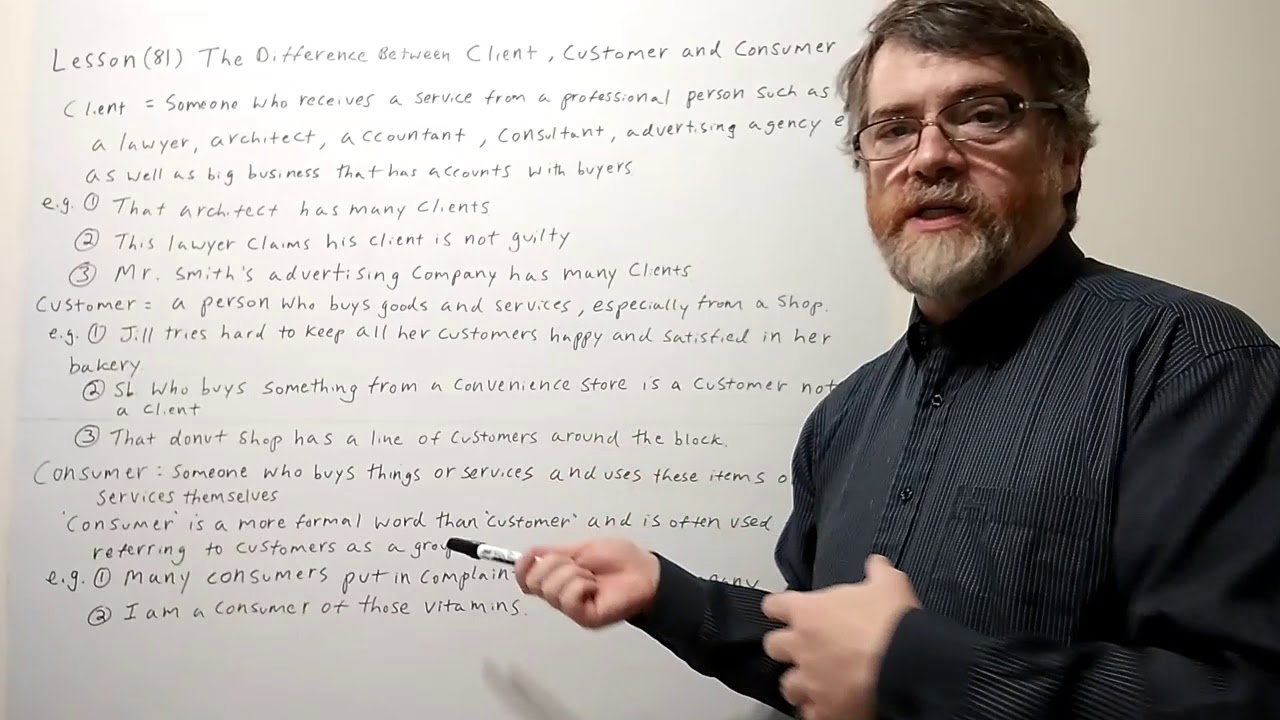 Lesson (81) The Difference Between Client, Customer and Consumer
Client = Someone who receives a service from a professional person such as
a lawyer, architect, accountant, consultant, advertising agency e
as well as big business that has accounts with buyers
e.g. ① That architect has many clients
② This lawyer claims his client is not guilty
③ Mr. Smith's advertising company has many clients
Customer = a person who buys goods and services, especially from a shop.
e.g. ① Jill tries hard to keep all her customers happy and satisfied in her
bakery.
② Sb who buys something from a convenience store is a customer not
a client
③ That donut shop has a line of customers around the block.
Consumer: Someone who buys things or services and uses these items o
services themselves
'Consumer' is a more formal word than 'customer' and is often used
referring to customers as a gro
e.g. ① Many consumers put in complain
② I am a consumer of those vitamins.